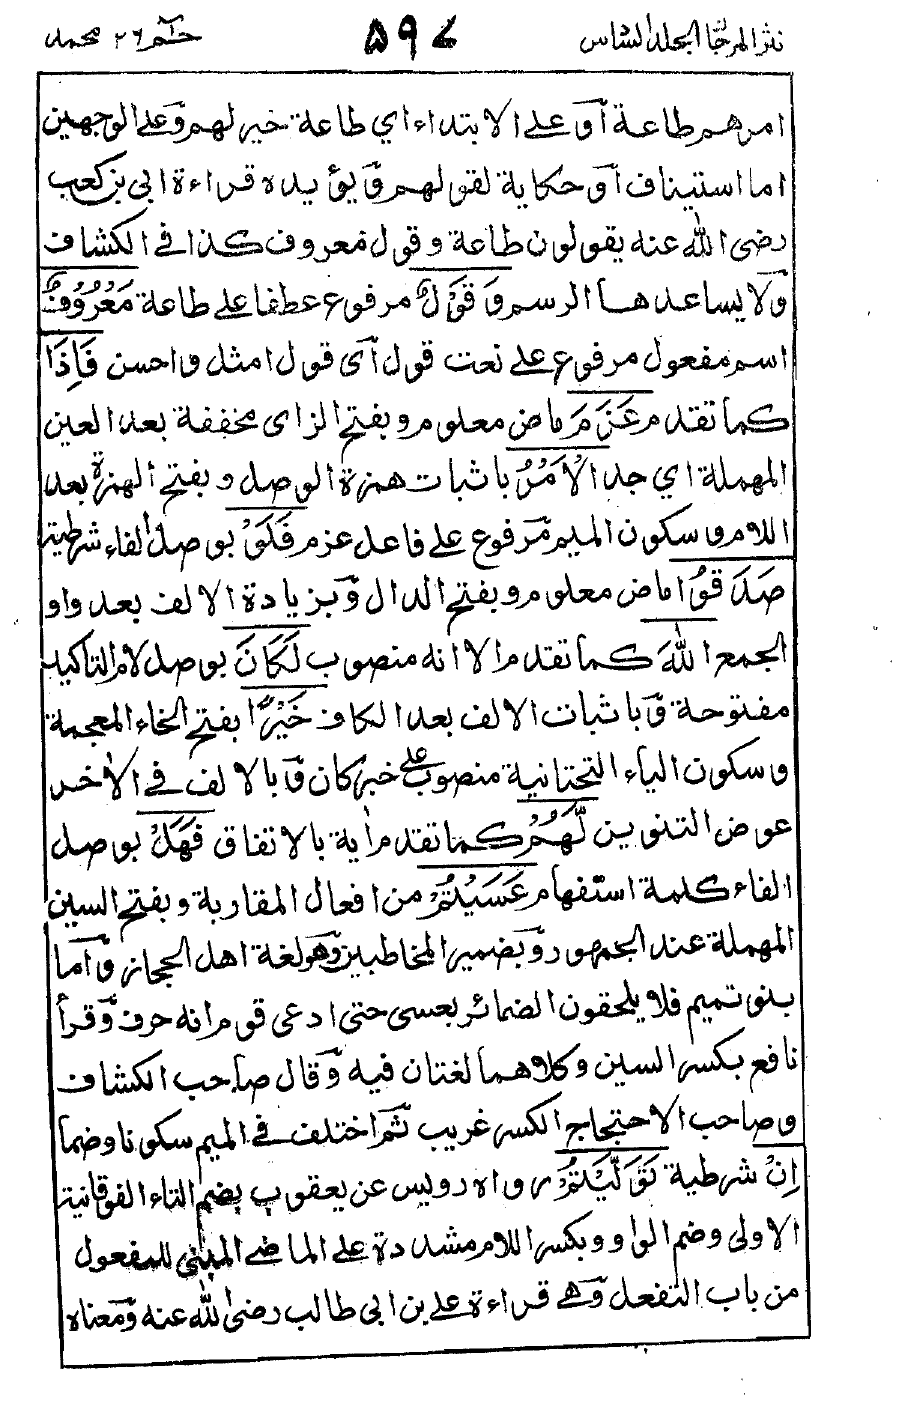 نثر المرجان المجلد السادس ۵۹۷ حٰم ۲۶ محمد
امرهم طاعة اَو على الابتداء اي طاعة خير لهم وَعلى الوجهين
اما استيناف اَو حكاية لقولهم وَيؤيده قراءة ابي بن كعب
رضى الله عنه يقولون طاعة وقول معروف كذا فى الكشاف
وَلا يساعدها الرسم وَ قَوْلٌ مرفوع عطفا على طاعة مَعْرُوْفٌ
اسم مفعول مرفوع على نعت قول اَى قول امثل واحسن فَاِذَا
كما تقدم عَزَمَ ماض معلوم وبفتح الزاى مخففة بعد العين
المهملة اي جد الْاَمْرُ باثبات همزة الوصل وبفتح الهمزة بعد
اللام وسكون الميم مرفوع على فاعل عزم فَلَوْ بوصل الفاء شرطية
صَدَقُوْا ماض معلوم وبفتح الدال وَبزيادة الالف بعد واو
الجمع اللّٰهَ كما تقدم الا انه منصوب لَكَانَ بوصل لام التاكيد
مفتوحة وَباثبات الالف بعد الكاف خَيْرًا بفتح الخاء المعجمة
وسكون الياء التحتانية منصوب على خبر كان وَبالالف فى الاٰخر
عوض التنوين لَّهُمْ كما تقدم اٰية بالاتفاق فَهَلْ بوصل
الفاء كلمة استفهام عَسَيْتُمْ من افعال المقاربة وبفتح السين
المهملة عند الجمهور وَبضمير المخاطبين وَهو لغة اهل الحجاز وَاَما
بنو تميم فلا يلحقون الضمائر بعسى حتى ادعى قوم انه حرف وَقرأ
نافع بكسر السين وكلاهما لغتان فيه وَقال صاحب الكشاف
وصاحب الاحتجاج الكسر غريب ثم اختلف فى الميم سكونا وضما
اِنْ شرطية تَوَلَّيْتُمْ رواه رويس عن يعقوب بضم التاء الفوقانية
الاولى وضم الواو وبكسر اللام مشددة على الماضى المبنى للمفعول
من باب التفعل وَهى قراءة على بن ابى طالب رضى الله عنه وَمعناه